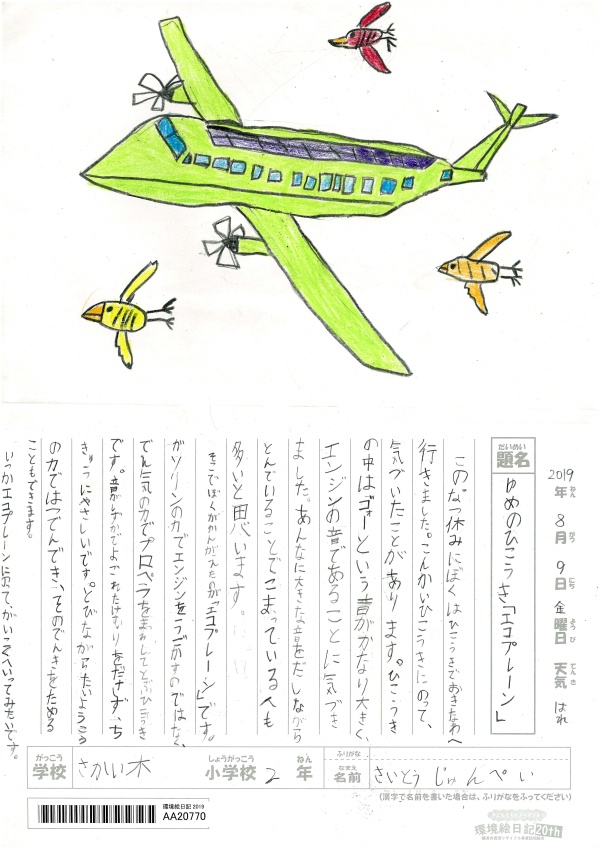 2019年ねん 8月がつ 9日にち 金曜日ようび 天気てんき はれ
だいめい
題名
ゆめのひこうき「エコプレーン」
このなつ休みにぼくはひこうきでおきなわへ
行きました。こんかいひこうきにのって、
気づいたことがあります。ひこうき
の中はゴォーという音がかなり大きく、
エンジンの音であることに気づき
ました。あんなに大きな音をだしながら
とんでいることでこまっている人も
多いと思います。
そこでぼくがかんがえたのが「エコプレーン」です。
ガソリンの力でエンジンをうごかすのではなく、
でん気の力でプロペラをまわしてとぶひこうき
です。音がしずかでよごれたけむりをださず、ち
きゅうにやさしいです。とびながらたいようこう
の力ではつでんでき、そのでんきをためる
こともできます。
いつかエコプレーンにのって、がいこくへいってみたいです。
がっこう
学校
さかい木
しょうがっこう
小学校
2
ねん
年
ふりがな
なまえ
名前
さいとう じゅんぺい
(漢字で名前を書いた場合は、ふりがなをふってください)
環境絵日記 2019
AA20770
環境絵日記20th